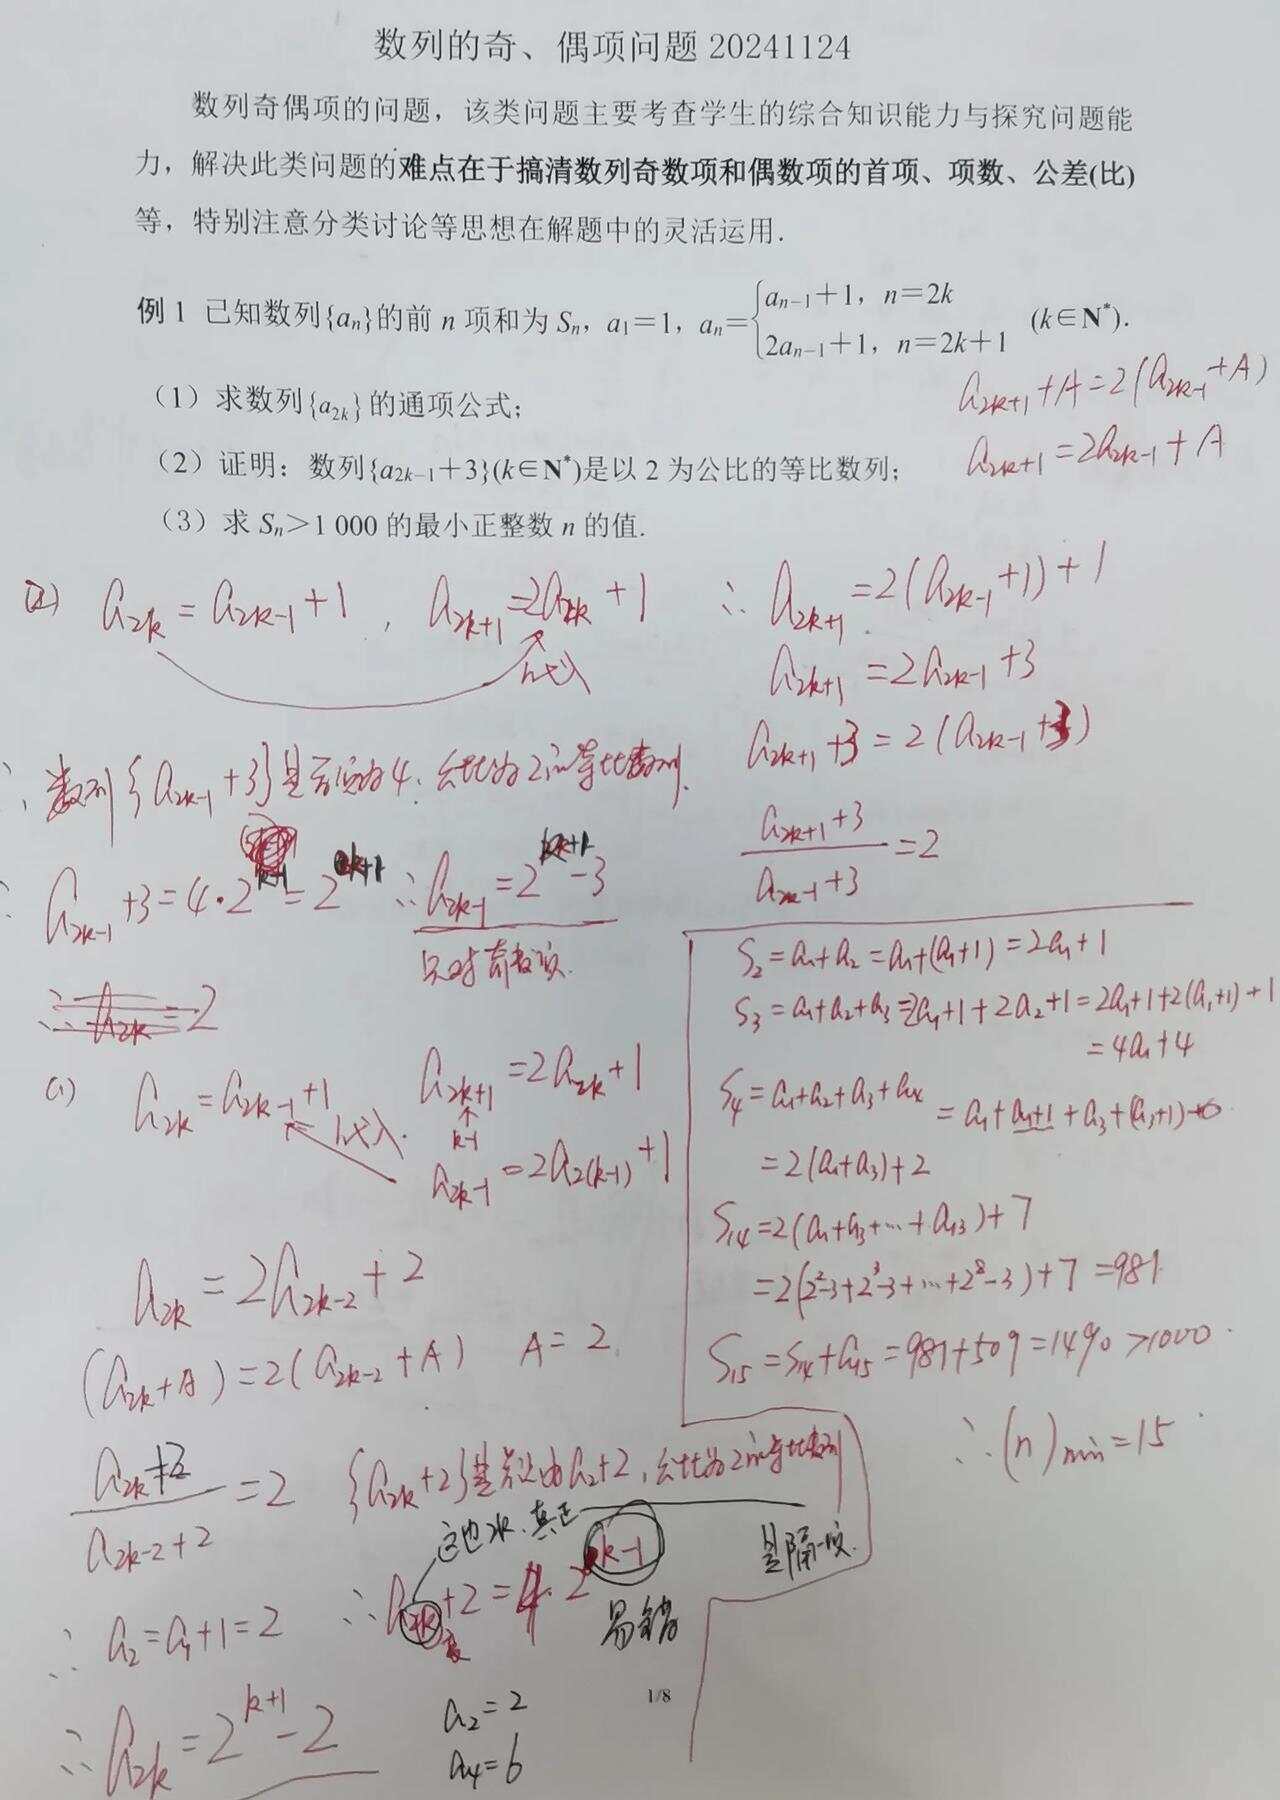 数列的奇、偶项问题 20241124
数列奇偶项的问题，该类问题主要考查学生的综合知识能力与探究问题能
力，解决此类问题的难点在于搞清数列奇数项和偶数项的首项、项数、公差(比)
等，特别注意分类讨论等思想在解题中的灵活运用.
例 1 已知数列{aₙ}的前 n 项和为 Sₙ，a₁＝1，aₙ＝{aₙ₋₁＋1，n＝2k
2aₙ₋₁＋1，n＝2k＋1 (k∈N*).
（1）求数列{a₂ₖ}的通项公式；
a₂ₖ₊₁+A=2(a₂ₖ₋₁+A)
（2）证明：数列{a₂ₖ₋₁＋3}(k∈N*)是以 2 为公比的等比数列；
a₂ₖ₊₁=2a₂ₖ₋₁+A
（3）求 Sₙ＞1 000 的最小正整数 n 的值.
(2) a₂ₖ=a₂ₖ₋₁+1, a₂ₖ₊₁=2a₂ₖ+1 ∴ a₂ₖ₊₁=2(a₂ₖ₋₁+1)+1
代入
a₂ₖ₊₁=2a₂ₖ₋₁+3
a₂ₖ₊₁+3=2(a₂ₖ₋₁+3)
∴数列{a₂ₖ₋₁+3}是首项为4，公比为2的等比数列.
(a₂ₖ₊₁+3)/(a₂ₖ₋₁+3)=2
∴a₂ₖ₋₁+3=4·2^(k-1)=2^(k+1) ∴a₂ₖ₋₁=2^(k+1)-3
只对奇数项.
∴a₂ₖ=2
(1) a₂ₖ=a₂ₖ₋₁+1 a₂ₖ₊₁=2a₂ₖ+1
代入. k-1
a₂ₖ₋₁=2a₂₍ₖ₋₁₎+1
a₂ₖ=2a₂ₖ₋₂+2
(a₂ₖ+A)=2(a₂ₖ₋₂+A) A=2.
(a₂ₖ+2)/(a₂ₖ₋₂+2)=2 {a₂ₖ+2}是首项为a₂+2，公比为2的等比数列
这也2k.真正
是隔一项.
∴a₂ₖ+2=4·2^(k-1)
易错
∴a₂=a₁+1=2
∴a₂ₖ=2^(k+1)-2
a₂=2
a₄=6
S₂=a₁+a₂=a₁+(a₁+1)=2a₁+1
S₃=a₁+a₂+a₃=2a₁+1+2a₂+1=2a₁+1+2(a₁+1)+1
=4a₁+4
S₄=a₁+a₂+a₃+a₄=a₁+a₁+1+a₃+(a₃+1)
=2(a₁+a₃)+2
S₁₄=2(a₁+a₃+…+a₁₃)+7
=2(2²-3+2³-3+…+2⁸-3)+7=981.
S₁₅=S₁₄+a₁₅=981+509=1490>1000.
∴(n)min=15
1/8